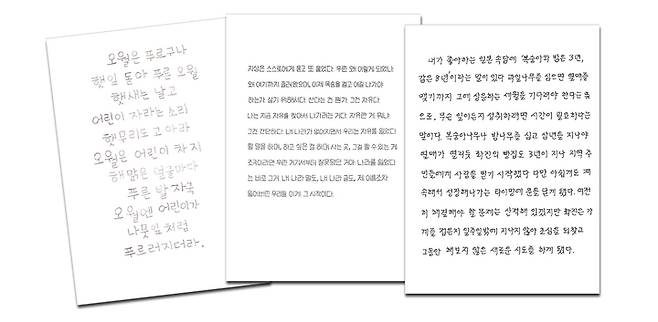 오월은 푸르구나
햇잎 돋아 푸른 오월
햇새는 날고
어린이 자라는 소리
햇무리도 고아라
오월은 어린이 차지
해맑은 얼굴마다
푸른 발자국
오월엔 어린이가
나뭇잎처럼
푸르러지더라.
지상은 스스로에게 묻고 또 물었다. 우린 왜 이렇게 되었나.
왜 여기까지 흘러왔으며, 이제 목숨을 걸고 어딜 나가야
하는가. 살기 위해서다. 산다는 건 뭔가. 그건 자유다.
나는 지금 자유를 찾아서 나가려는 거다. 자유란 거 뭐냐.
그건 간단하다. 내 나라가 없어지면서 우리는 자유를 잃었다.
할 말을 하며, 하고 싶은 걸 하며 사는 곳, 그걸 할 수 있는 게
조국이라면 우린 거기서부터 잘못되었던 거다. 나라를 잃었다
는 바로 그거. 내 나라 말도, 내 나라 글도, 저 이름조차
잃어버린 우리들 이거. 그 시작이다.
내가 좋아하는 일본 속담에 '복숭아와 밤은 3년,
감은 8년'이라는 말이 있다. 과일나무를 심으면 열매를
맺기까지 그에 상응하는 세월을 기다려야 한다는 뜻
으로, 무슨 일이든지 성취하려면 시간이 필요하다는
말이다. 복숭아나무나 밤나무를 심은 삼년을 지나야
열매가 열리듯 확진의 방침도 3년이 지나 지역 주
민들에게 사랑을 받기 시작했다. 다만 아쉽게도 계
속해서 성장해나가는 타이밍에 문을 닫게 됐다. 여전
히 해결해야 할 문제는 산적해 있겠지만 확진은 가
게를 접은지 일주일밖에 지나지 않아 초심을 되찾고
그동안 해보지 않은 새로운 시도를 하게 됐다.